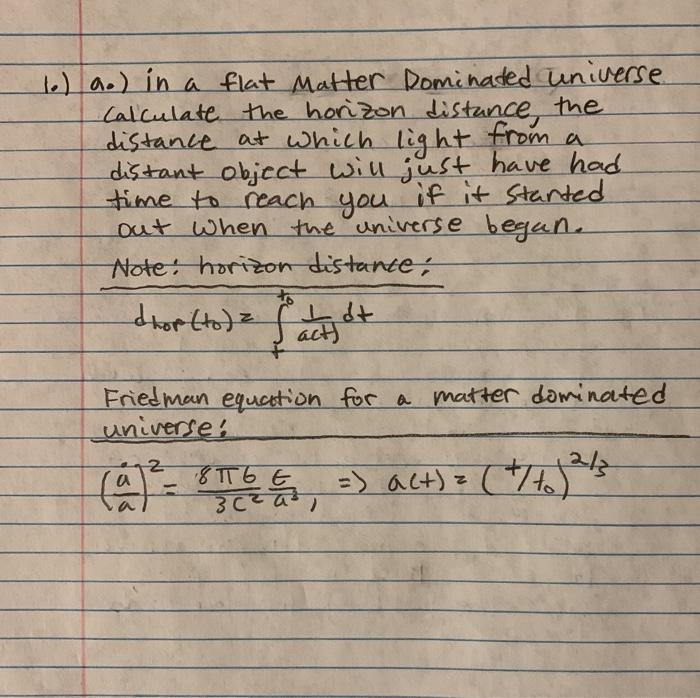 1.) a.) in a flat Matter Dominated universe
calculate the horizon distance, the
distance at which light from a
distant object will just have had
time to reach you if it started
out when the universe began.
Note: horizon distance:
dhor(t₀) = ∫ₜ^t₀ 1/a(t) dt
Friedman equation for a matter dominated
universe:
(ȧ/a)² = 8πG/3c² ε/a³, => a(t) = (t/t₀)^2/3